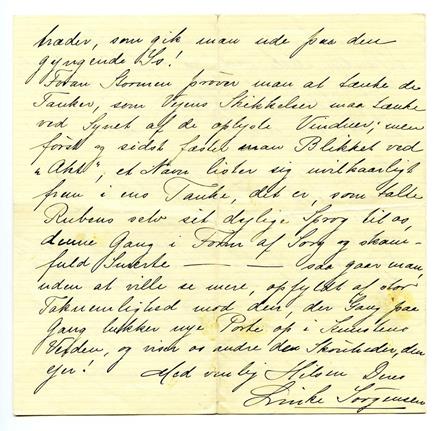 bræder, som gik man ude paa den
gyngende Is!
Foran Stormen prøver man at tænke de
Tanker, som Vejens Skikkelser maa tænke
ved Synet af de oplyste Vinduer; men
først og sidst fæster man Blikket ved
"Akt", et Navn lister sig uvilkaarligt
frem i ens Tanke, det er, som talte
Rubens selv sit dejlige Sprog til os,
denne Gang i Form af Sorg og skam-
fuld Smerte — — saa gaar man,
uden at ville se mere, opfyldt af stor
Taknemlighed mod den, der Gang paa
Gang lukker nye Porte op i Kunstens
Verden, og viser os andre den Skønheder, den
ejer!
Med venlig Hilsen Deres
Sørgensen